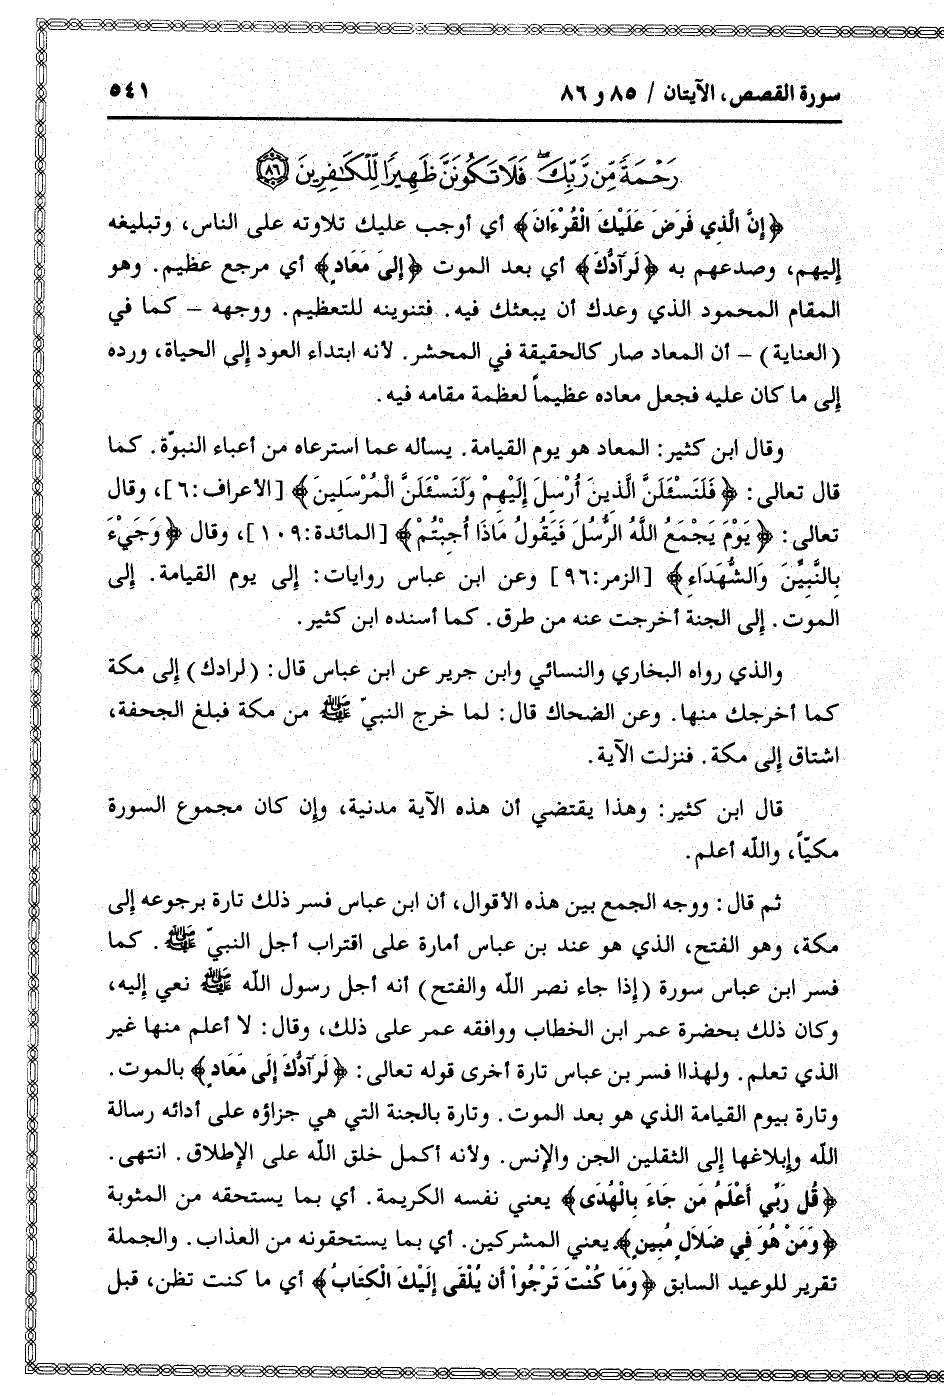 سورة القصص، الآيتان / ٨٥ و ٨٦ ٥٤١
رَحْمَةً مِّن رَّبِّكَ ۖ فَلَا تَكُونَنَّ ظَهِيرًا لِّلْكَافِرِينَ ﴿٨٦﴾
﴿إِنَّ الَّذِي فَرَضَ عَلَيْكَ الْقُرْءَانَ﴾ أي أوجب عليك تلاوته على الناس، وتبليغه
إليهم، وصدعهم به ﴿لَرَآدُّكَ﴾ أي بعد الموت ﴿إِلىَ مَعَادٍ﴾ أي مرجع عظيم. وهو
المقام المحمود الذي وعدك أن يبعثك فيه. فتنوينه للتعظيم. ووجهه – كما في
(العناية) – أن المعاد صار كالحقيقة في المحشر. لأنه ابتداء العود إلى الحياة، ورده
إلى ما كان عليه فجعل معاده عظيماً لعظمة مقامه فيه.
وقال ابن كثير: المعاد هو يوم القيامة. يسأله عما استرعاه من أعباء النبوّة. كما
قال تعالى: ﴿فَلَنَسْئَلَنَّ الَّذِينَ أُرْسِلَ إِلَيْهِمْ وَلَنَسْئَلَنَّ الْمُرْسَلِينَ﴾ [الأعراف:٦]، وقال
تعالى: ﴿يَوْمَ يَجْمَعُ اللَّهُ الرُّسُلَ فَيَقُولُ مَاذَا أُجِبْتُمْ﴾ [المائدة:١٠٩]، وقال ﴿وَجَيْءَ
بِالنَّبِيِّنَ وَالشُّهَدَاءِ﴾ [الزمر:٩٦] وعن ابن عباس روايات: إلى يوم القيامة. إلى
الموت. إلى الجنة أخرجت عنه من طرق. كما أسنده ابن كثير.
والذي رواه البخاري والنسائي وابن جرير عن ابن عباس قال: (لرادك) إلى مكة
كما أخرجك منها. وعن الضحاك قال: لما خرج النبيّ ﷺ من مكة فبلغ الجحفة،
اشتاق إلى مكة. فنزلت الآية.
قال ابن كثير: وهذا يقتضي أن هذه الآية مدنية، وإن كان مجموع السورة
مكيّاً، والله أعلم.
ثم قال: ووجه الجمع بين هذه الأقوال، أن ابن عباس فسر ذلك تارة برجوعه إلى
مكة، وهو الفتح، الذي هو عند بن عباس أمارة على اقتراب أجل النبيّ ﷺ. كما
فسر ابن عباس سورة (إذا جاء نصر الله والفتح) أنه أجل رسول الله ﷺ نعي إليه،
وكان ذلك بحضرة عمر ابن الخطاب ووافقه عمر على ذلك، وقال: لا أعلم منها غير
الذي تعلم. ولهذاا فسر بن عباس تارة أخرى قوله تعالى: ﴿لَرَآدُّكَ إِلَى مَعَادٍ﴾ بالموت.
وتارة بيوم القيامة الذي هو بعد الموت. وتارة بالجنة التي هي جزاؤه على أدائه رسالة
الله وإبلاغها إلى الثقلين الجن والإنس. ولأنه أكمل خلق الله على الإطلاق. انتهى.
﴿قُل رَبِّي أَعْلَمُ مَن جَاءَ بِالْهُدَى﴾ يعني نفسه الكريمة. أي بما يستحقه من المثوبة
﴿وَمَنْ هُوَ فِي ضَلَالٍ مُبِينٍ﴾ يعني المشركين. أي بما يستحقونه من العذاب. والجملة
تقرير للوعيد السابق ﴿وَمَا كُنْتَ تَرْجُواْ أَن يُلْقَى إِلَيْكَ الْكِتَابُ﴾ أي ما كنت تظن، قبل